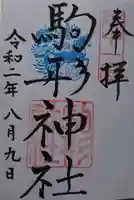 奉拝
駒形神社
令和二年八月九日